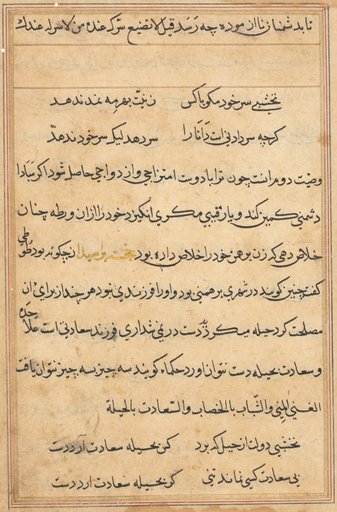 تا بد شما زنا ازموده چه رسد قیل لا تضیع سرک عند من لا سرله عندک
نخشبی سر خود مکو با کس زینت بهر مه ندند هد
کرچه سر دادنی است دانا را سر دهد لیک سر خود ندهد
وصیت دوم انست چون ترا با دوت امتزاجی و ازدواجی حاصل شود اکر مبادا
دشمنی کمین کند و یا رقیبی مکری انکیزد خود را ازان ورطه چنان
خلاص دهی که زن برهمن خود را خلاص داده بود خجسته پرسید ان چکونه بود طوطی
کفت چنین کویند در شهری برهمنی بود و او را فرزندی نبود هر چند از برای ان
مصلحت کرد حیله میکرد دست در نمی شد اری فرزند سعادتی است
و سعادت بحیله دست نتوان اورد حکماء کویند سه چیز بسه چیز نتوان یافت
الغنی بالمنی والشباب بالخضاب والسعادت بالحیلة
نخشبی دولت از حیل که برد کر بحیله سعادت ارد دست
بی سعادت کسی نماند نبی کو بحیله سعادت ارد دست